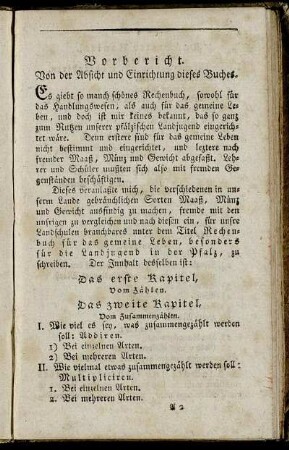 Vorbericht.
Von der Absicht und Einrichtung dieses Buches.
Es giebt so manch schönes Rechenbuch, sowohl für
das Handlungswesen, als auch für das gemeine Le-
ben, und doch ist mir keines bekannt, das so ganz
zum Nutzen unserer pfälzischen Landjugend eingerich-
tet wäre. Denn erstere sind für das gemeine Leben
nicht bestimmt und eingerichtet, und leztere nach
fremder Maaß, Münz und Gewicht abgefaßt. Leh-
rer und Schüler mußten sich also mit fremden Ge-
genständen beschäftigen.
Dieses veranlaßte mich, die verschiedenen in un-
serm Lande gebräuchlichen Sorten Maaß, Münz
und Gewicht ausfindig zu machen, fremde mit den
unsrigen zu vergleichen und nach diesen ein, für unsre
Landschulen brauchbares unter dem Titel Rechen-
buch für das gemeine Leben, besonders
für die Landjugend in der Pfalz, zu
schreiben. Der Innhalt desselben ist:
Das erste Kapitel,
Vom Zählen.
Das zweite Kapitel,
Vom Zusammenzählen.
I. Wie viel es sey, was zusammengezählt werden
soll: Addiren.
1) Bei einzelnen Arten.
2) Bei mehreren Arten.
II. Wie vielmal etwas zusammengezählt werden soll:
Multipliciren.
1. Bei einzelnen Arten.
2. Bei mehreren Arten.
A 2